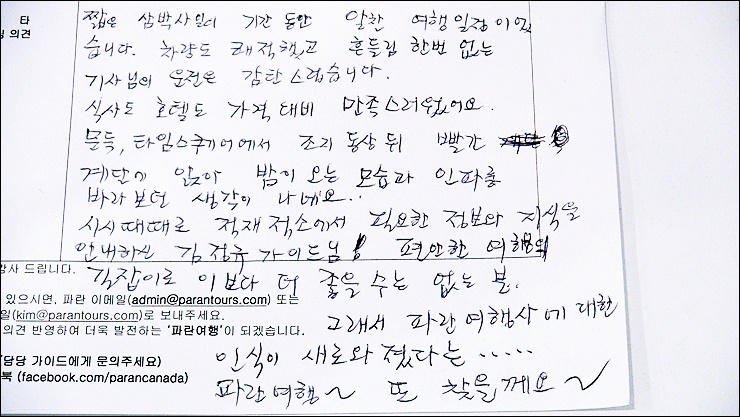 타
의견
짧은 삼박사일의 기간 동안 알찬 여행 일정이었
습니다. 차량도 쾌적했고 흔들림 한번 없는
기사님의 운전은 감탄스럽습니다.
식사도 호텔도 가격 대비 만족스러웠어요.
문득, 타임스퀘어에서 조지 동상 뒤 빨간
계단에 앉아 밤이 오는 모습과 인파를
바라보던 생각이 나네요..
시시때때로 적재적소에서 필요한 정보와 지식을
안내하신 김정규 가이드님 편안한 여행의
길잡이로 이보다 더 좋을 수는 없는 분.
감사 드립니다.
있으시면, 파란 이메일(admin@parantours.com) 또는
일(kim@parantours.com)로 보내주세요.
의견 반영하여 더욱 발전하는 '파란여행'이 되겠습니다.
그래서 파란여행사에 대한
담당 가이드에게 문의주세요)
인식이 새로와졌다는.....
북 (facebook.com/parancanada)
파란여행~ 또 찾을께요~